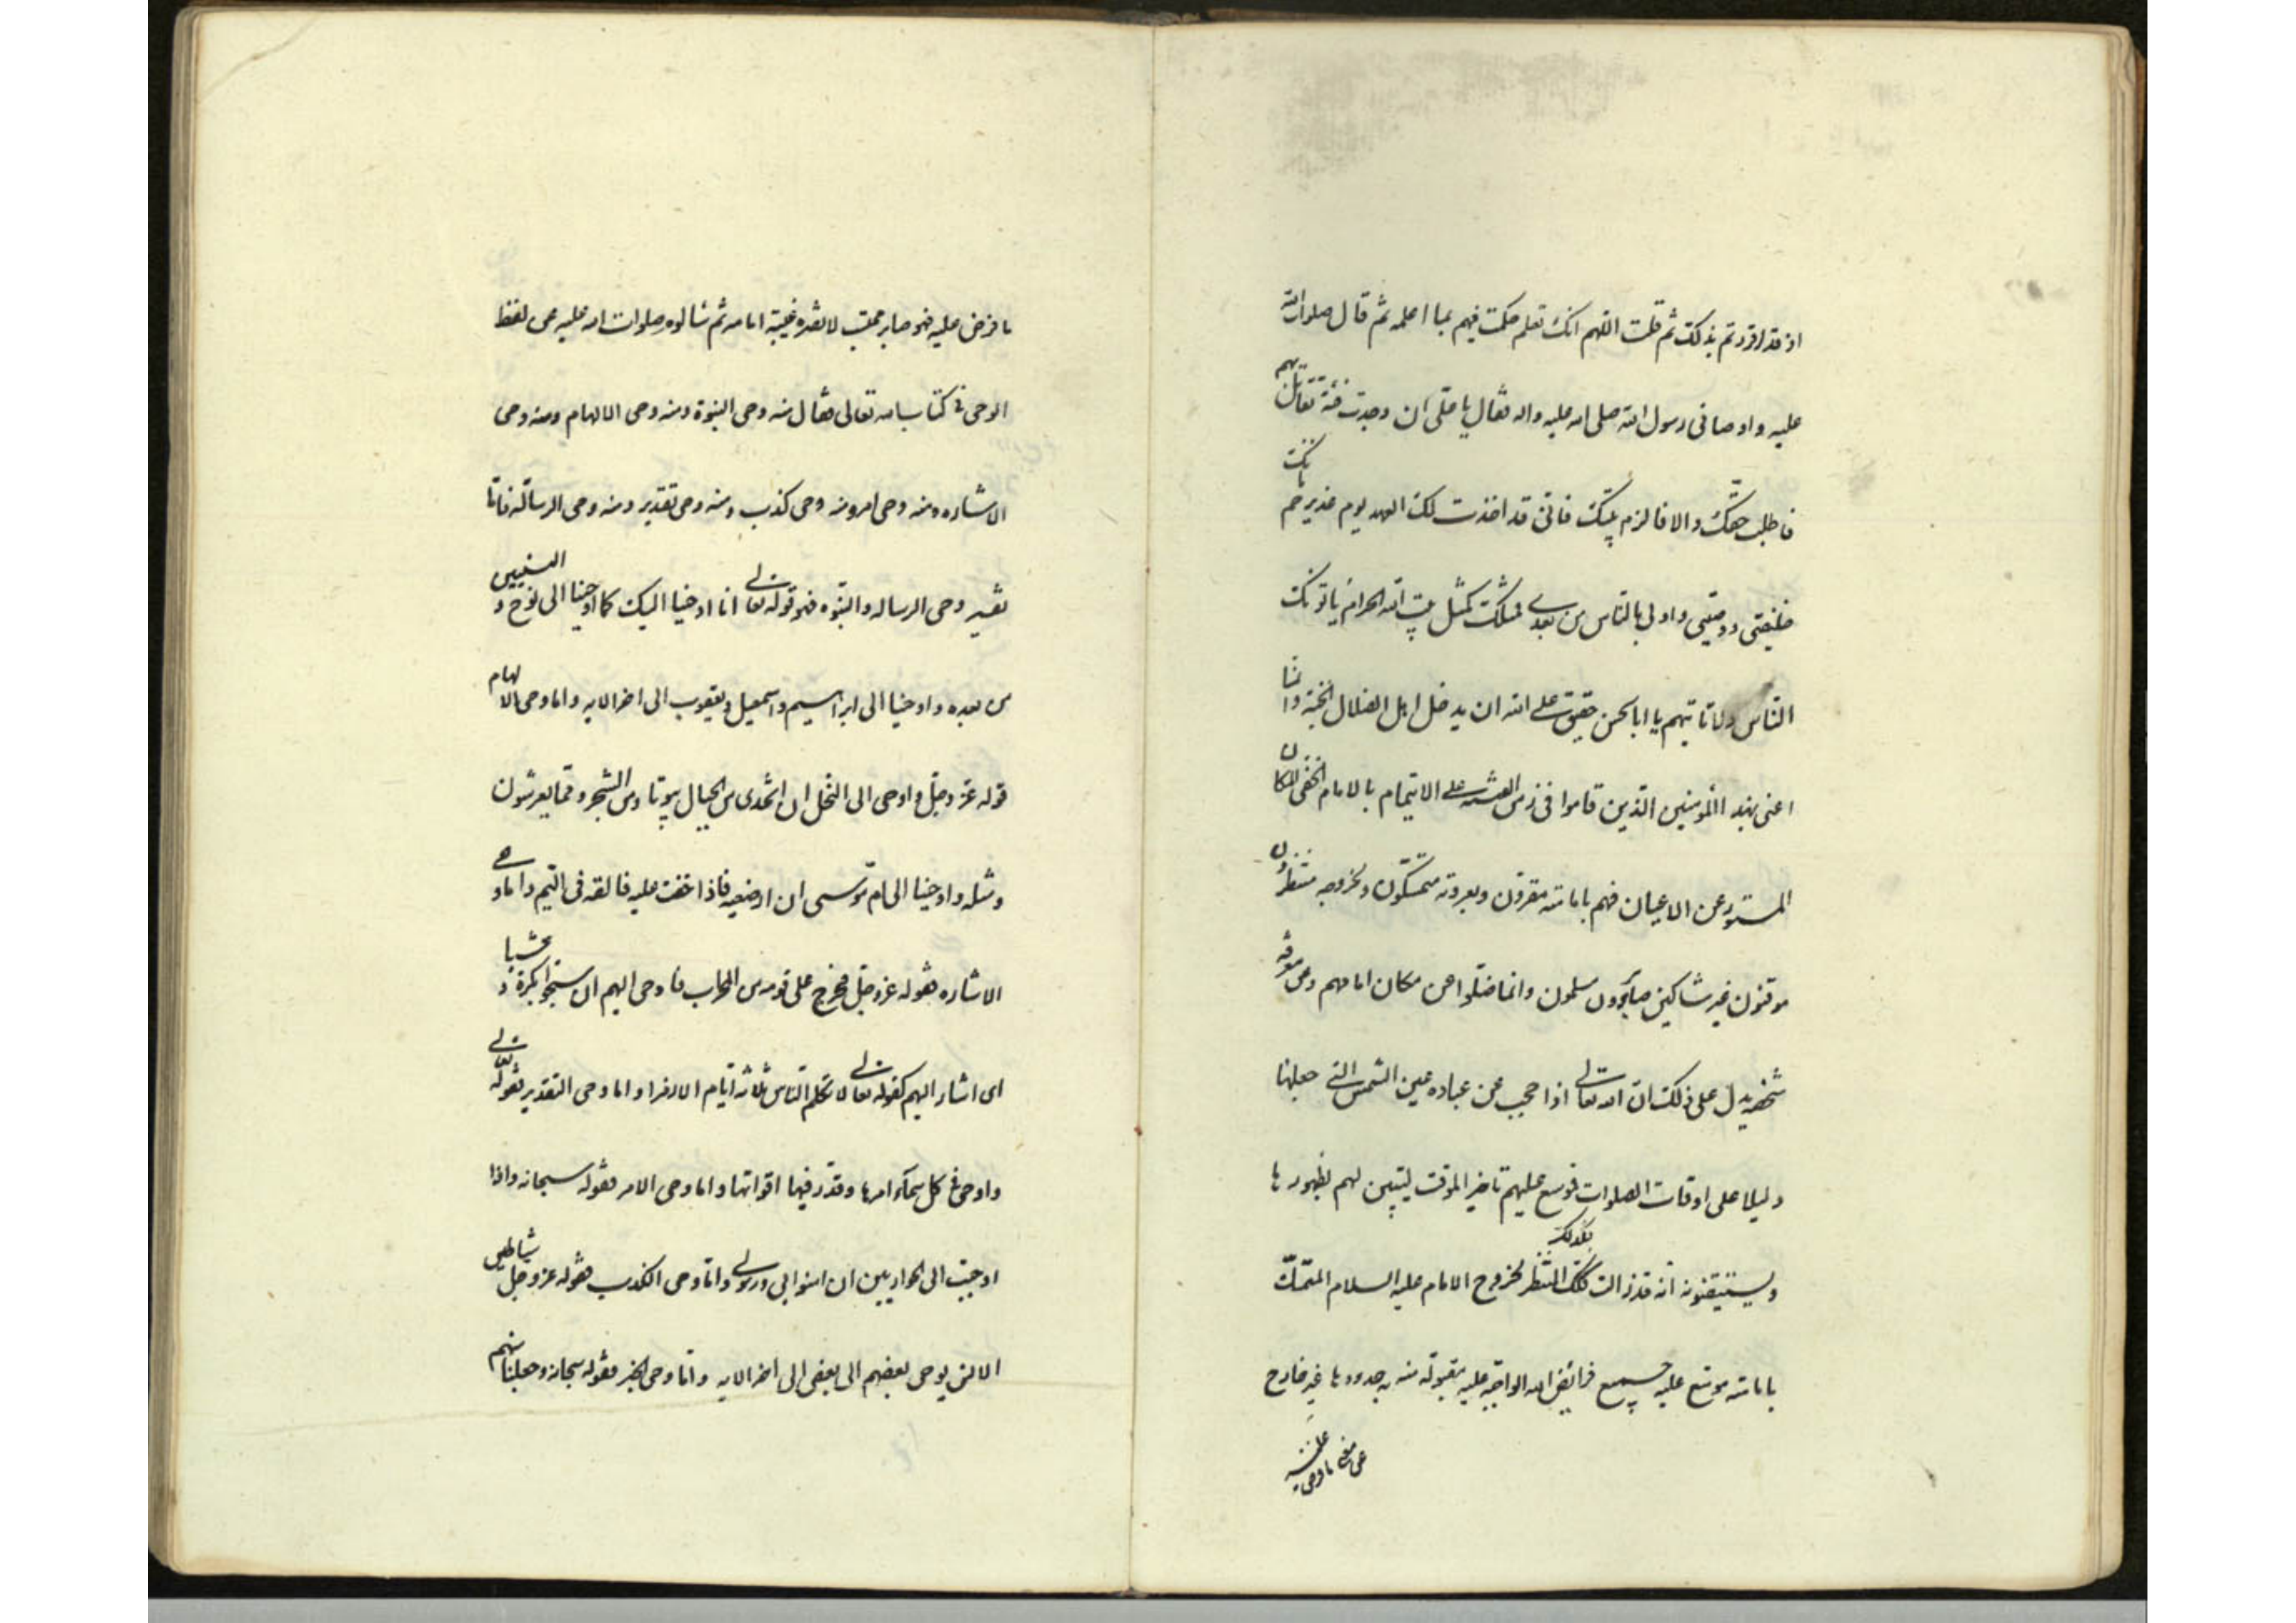 اذ قد اقررتم بذلك ثم قلت اللهم انك تعلم حكمت فيهم بما اعلمه ثم قال صلوات الله
عليه واوصانى رسول الله صلى الله عليه واله فقال يا على ان وجدت فئة تقاتل بهم
فاطلب حقك والا فالزم بيتك فانى قد اخذت لك العهد يوم غدير خم بانك
خليفتى ووصيى واولى بالناس من بعدى فمثلك كمثل بيت الله الحرام ياتونك
الناس ولا تاتيهم يا ابا الحسن حقيق على الله ان يدخل اهل الضلال الجنة وانما
اعنى بهذا المؤمنين الذين قاموا فى زمن الفتنة على الايتمام بالامام الخفى المكان
المستور عن الاعيان فهم بامامته مقرون وبعروته متمسكون ولخروجه منتظرون
موقنون غير شاكين صابرون مسلمون وانما ضلوا عن مكان امامهم وعن معرفة
شخصه يدل على ذلك ان الله تعالى اذا حجب عن عباده عين الشمس التى جعلها
دليلا على اوقات الصلوات فموسع عليهم تاخير الموقت ليتبين لهم بظهورها
ويستيقنون انه قد زالت فكذلك المنتظر لخروج الامام عليه السلام المتمسك
بامامته موسع عليه جميع فرائض الله الواجبة عليه مقبولة منه بحدودها غير خارج
عن معنى ما فرض عليه
ما فرض عليه فهو صابر محتسب لا تضره غيبة امامه ثم سالوه صلوات الله عليه عن لفظ
الوحى فى كتاب الله تعالى فقال منه وحى النبوة ومنه وحى الالهام ومنه وحى
الاشاره ومنه وحى امر ومنه وحى كذب ومنه وحى تقدير ومنه وحى الرسالة فاما
تفسير وحى الرساله والنبوه فهو قوله تعالى انا اوحينا اليك كما اوحينا الى نوح و النبيين
من بعده واوحينا الى ابراهيم واسمعيل ويعقوب الى اخر الايه واما وحى الالهام
قوله عز وجل واوحى الى النحل ان اتخذى من الجبال بيوتا ومن الشجر ومما يعرشون
ومثله واوحينا الى ام موسى ان ارضعيه فاذا خفت عليه فالقه فى اليم واما وحى
الاشاره فقوله عز وجل فخرج على قومه من المحراب فاوحى اليهم ان سبحوا بكرة و عشيا
اى اشار اليهم كقوله تعالى لا تكلم الناس ثلاثة ايام الا رمزا واما وحى التقدير فقوله تعالى
واوحى فى كل سماء امرها وقدر فيها اقواتها واما وحى الامر فقوله سبحانه واذا
اوحيت الى الحواريين ان امنوا بى وبرسولى واما وحى الكذب فقوله عز وجل شياطين
الانس يوحى بعضهم الى بعض الى اخر الايه واما وحى الخبر فقوله سبحانه وجعلناهم